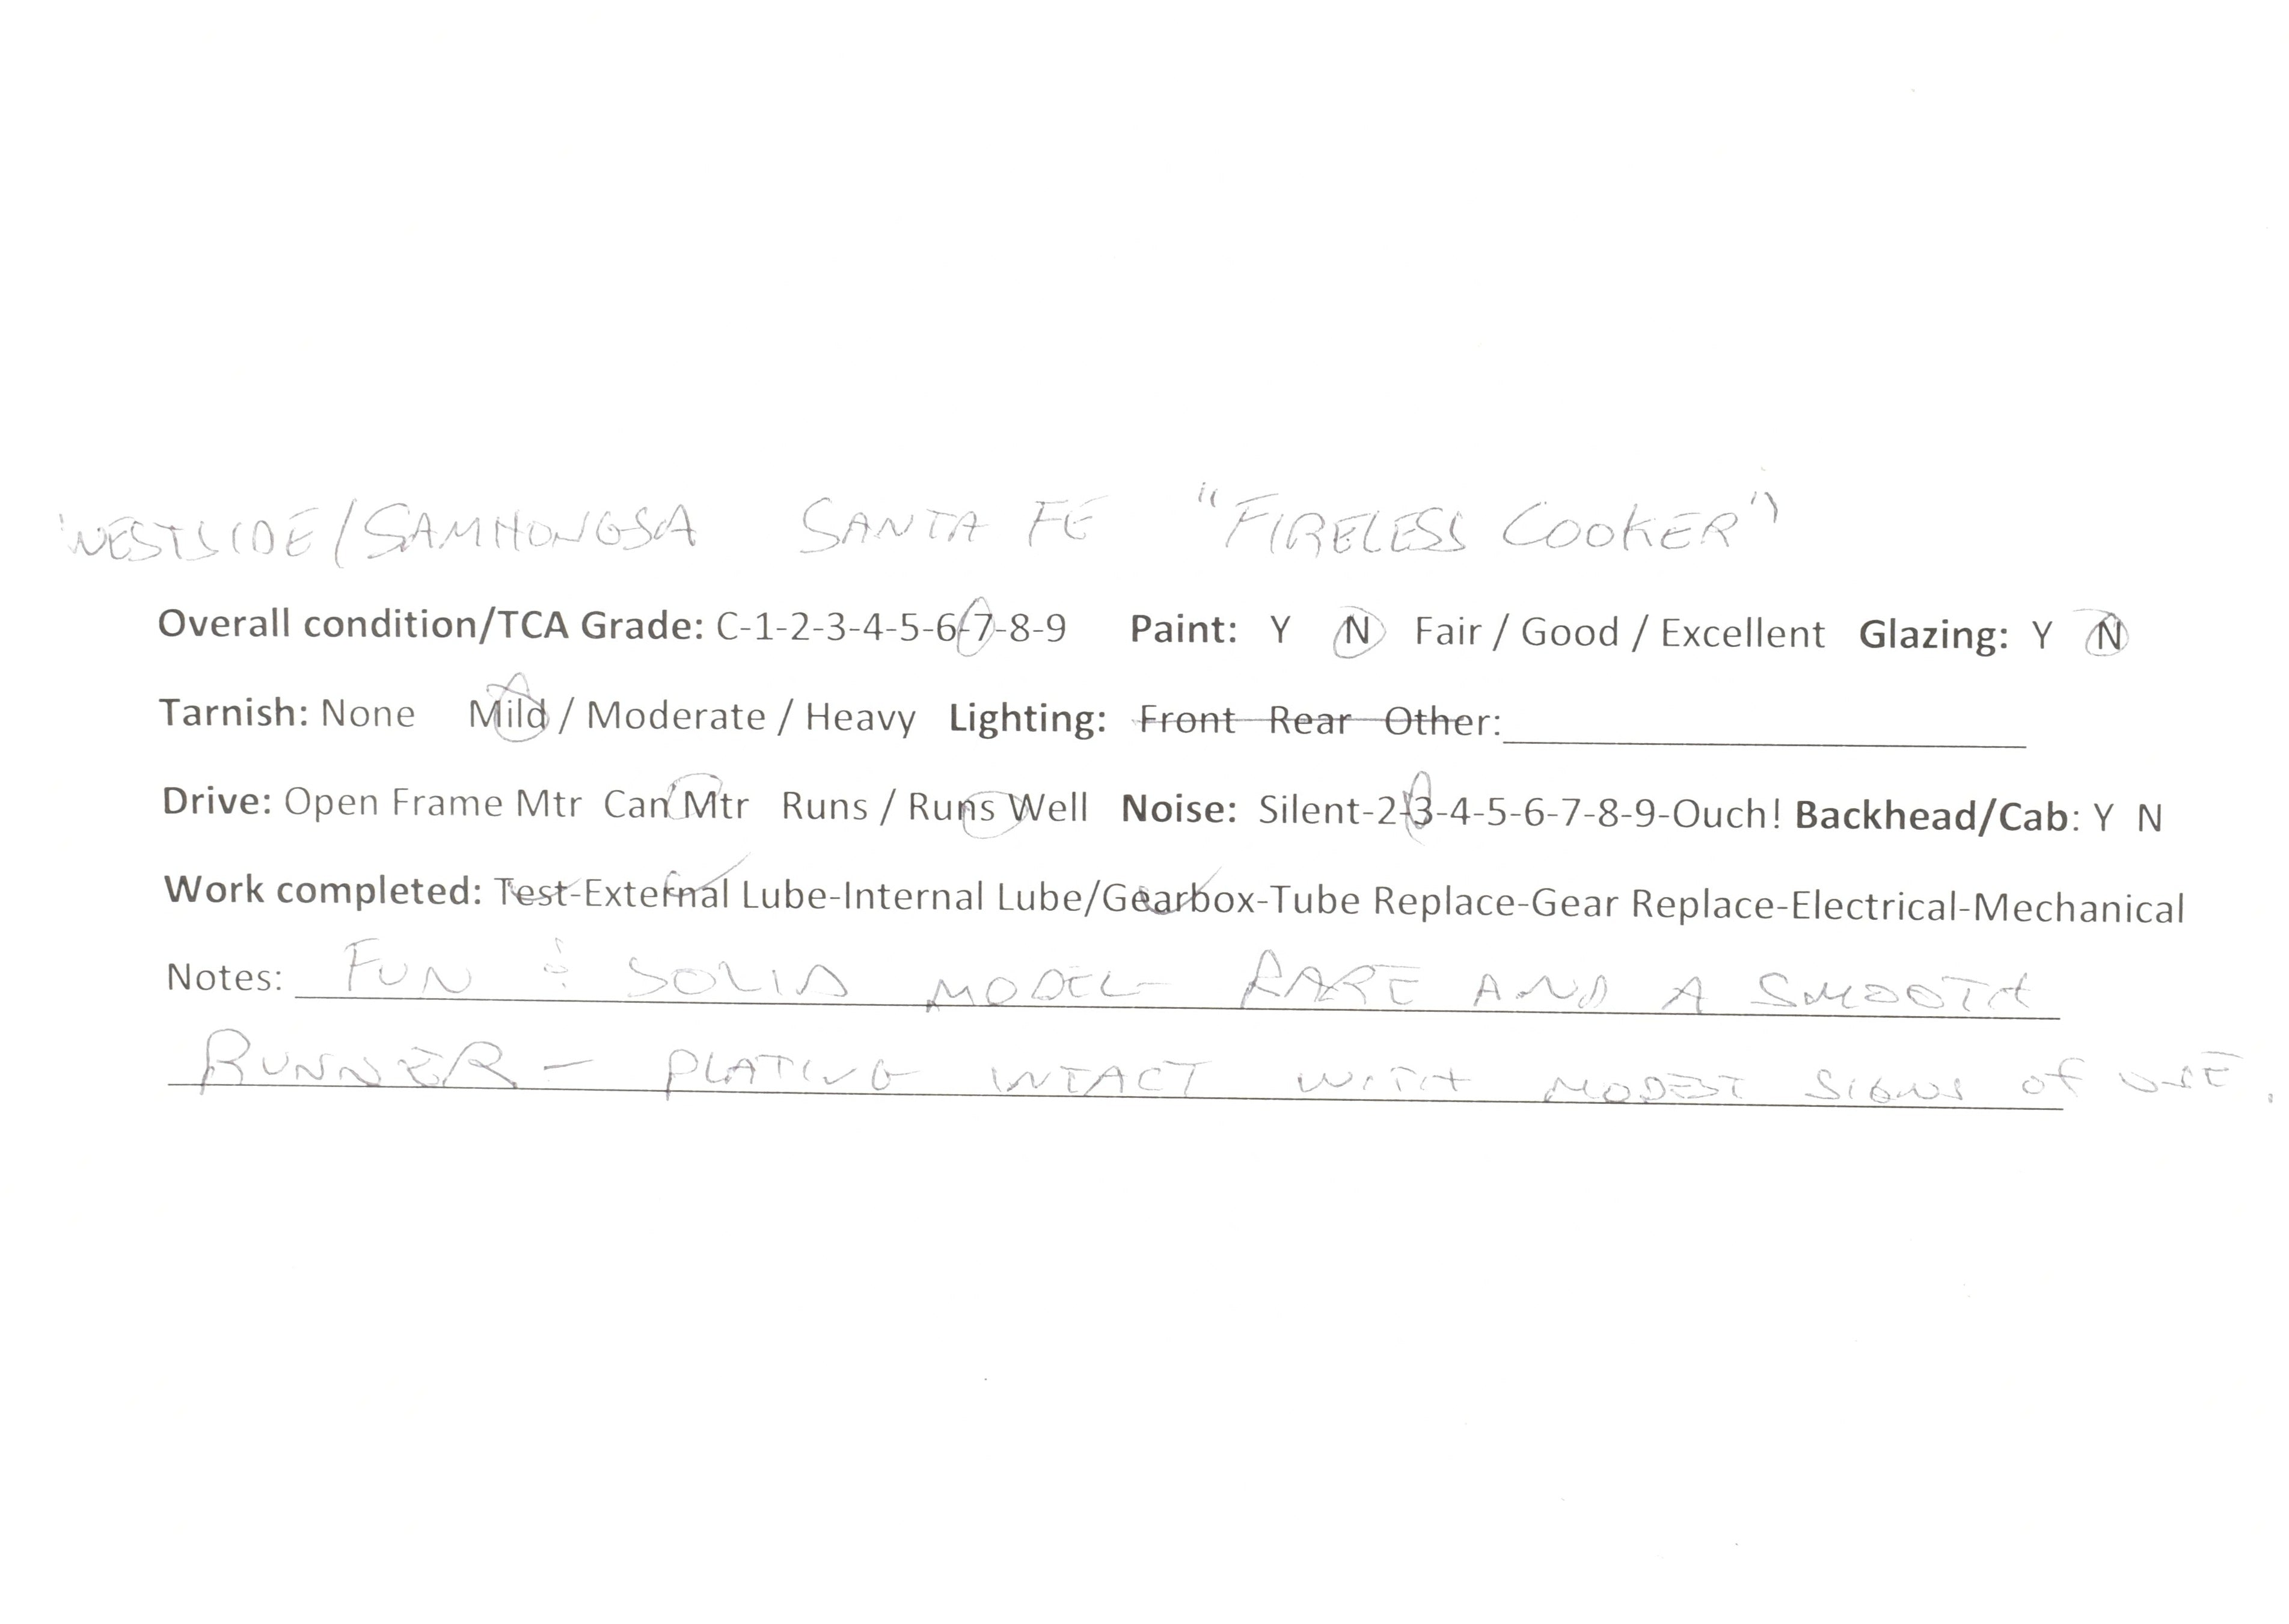 WESTSIDE/SAMHONGSA SANTA FE "FIRELESS COOKER"
Overall condition/TCA Grade: C-1-2-3-4-5-6-7-8-9 Paint: Y N Fair / Good / Excellent Glazing: Y N
Tarnish: None Mild / Moderate / Heavy Lighting: Front Rear Other:
Drive: Open Frame Mtr Can Mtr Runs / Runs Well Noise: Silent-2-3-4-5-6-7-8-9-Ouch! Backhead/Cab: Y N
Work completed: Test-External Lube-Internal Lube/Gearbox-Tube Replace-Gear Replace-Electrical-Mechanical
Notes: FUN & SOLID MODEL- RARE AND A SMOOTH
RUNNER - PLATING INTACT WITH MODEST SIGNS OF USE.